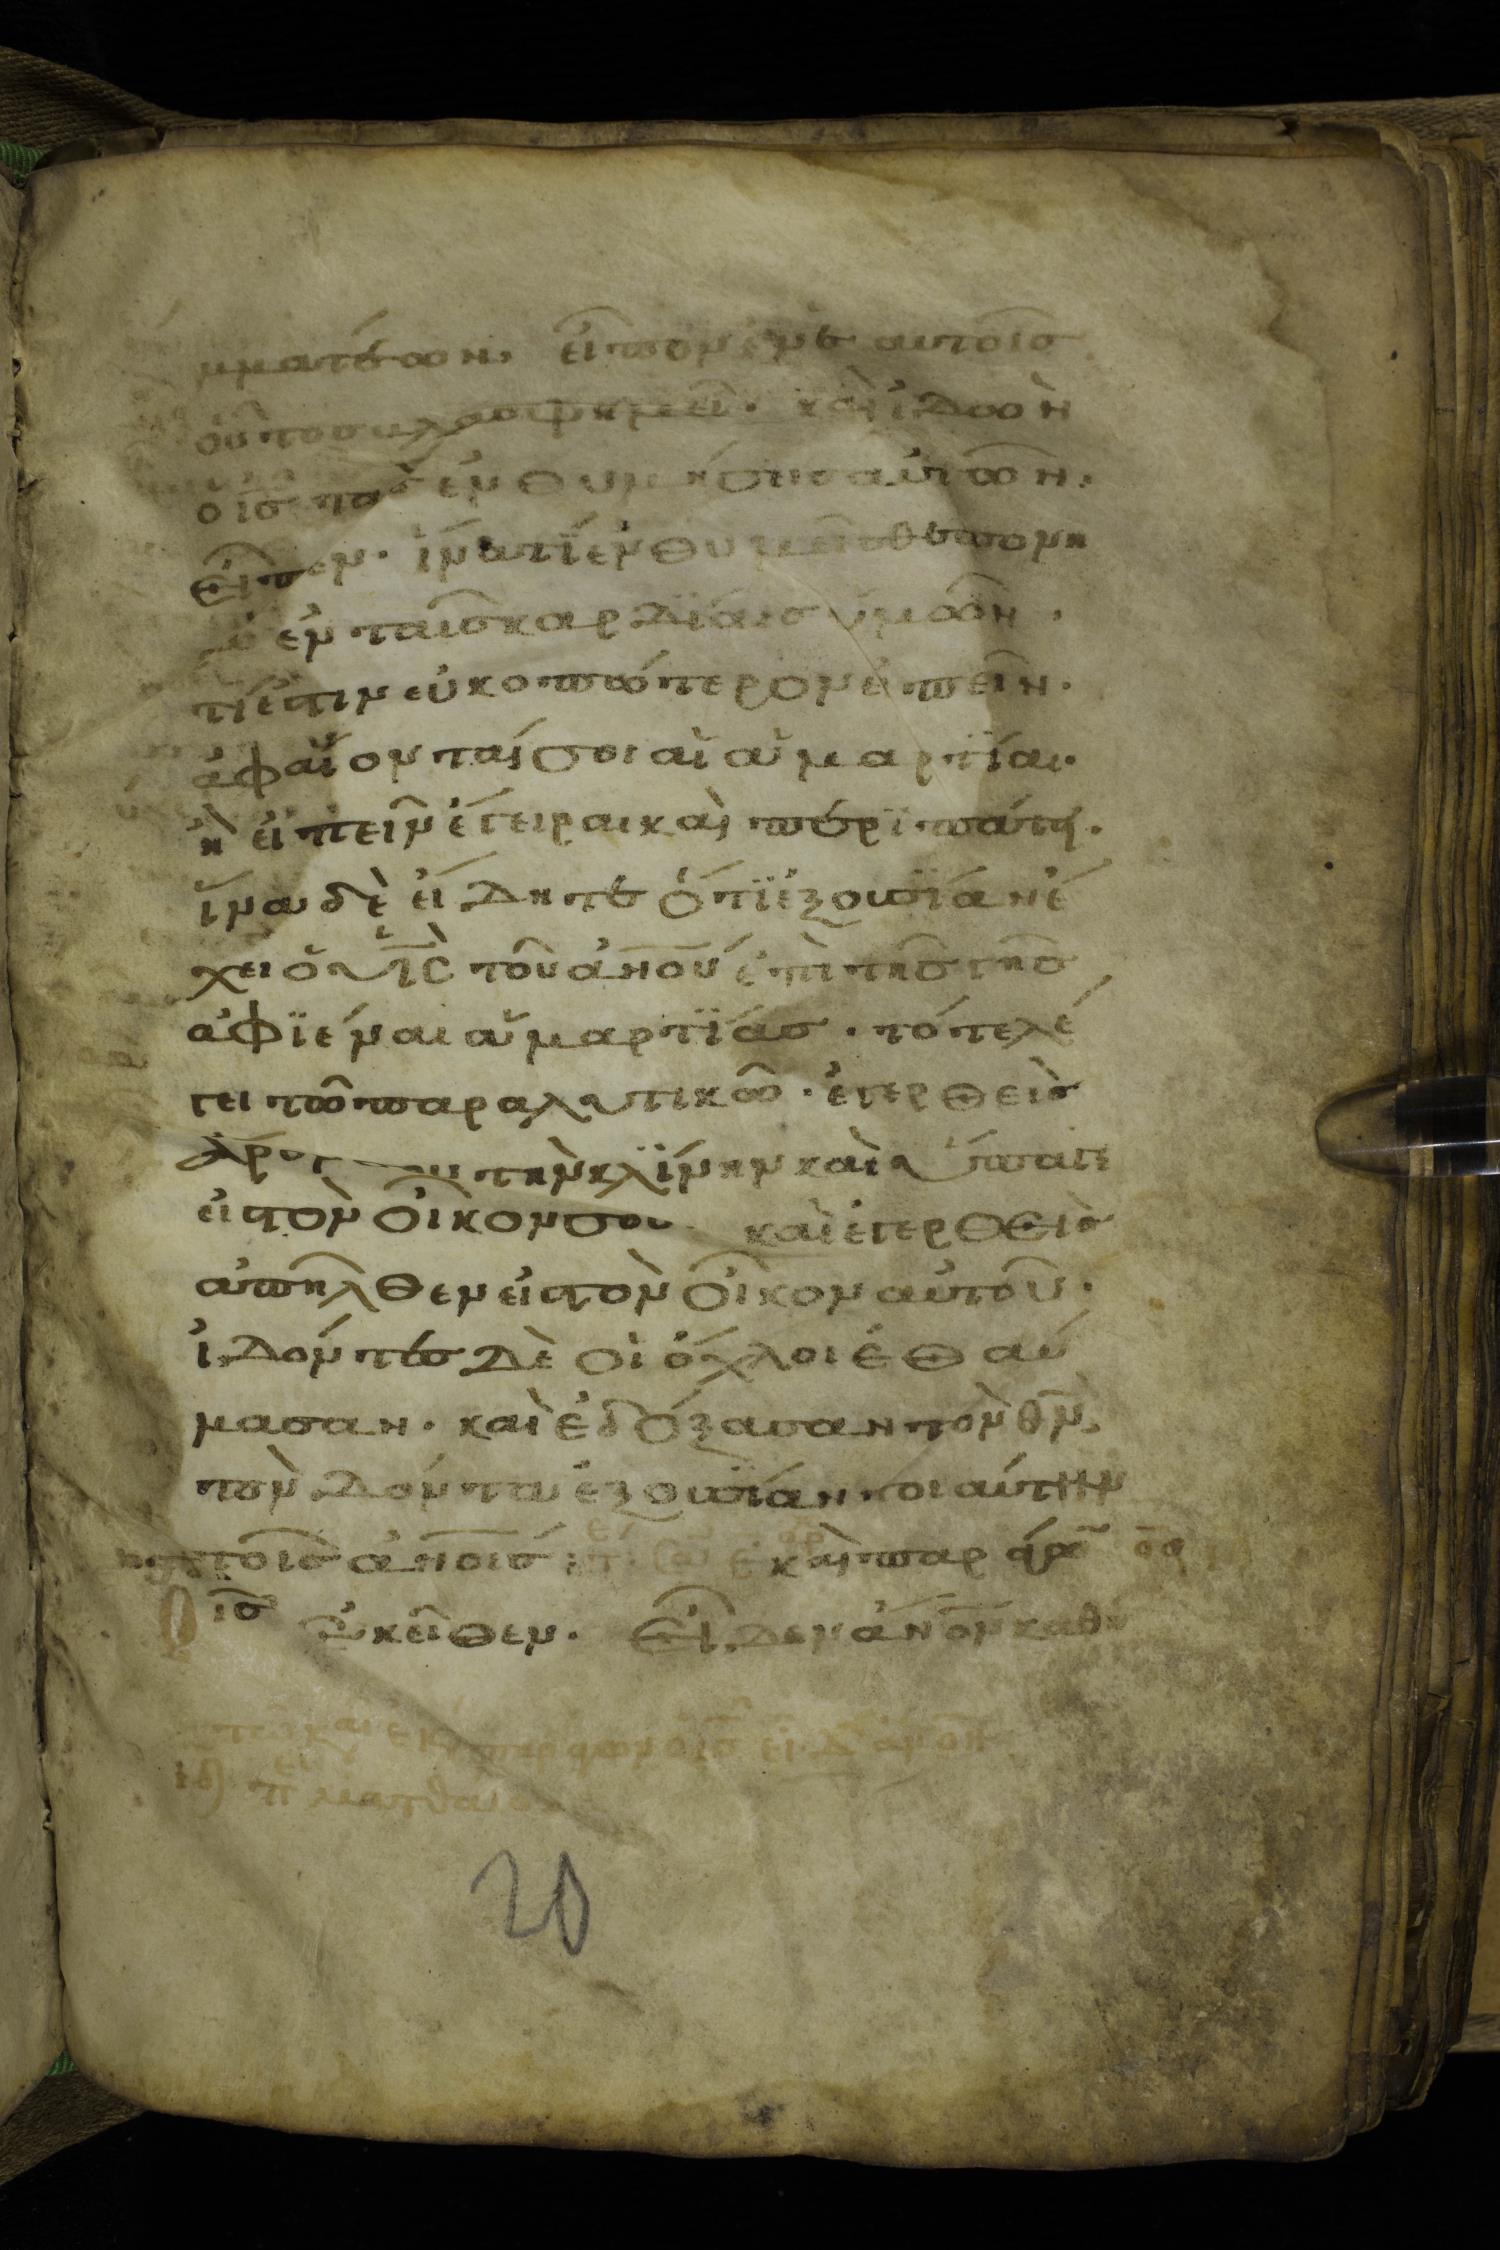 μματέων, εἶπον ἐν ἑαυτοῖσ
οὗτοσ βλασφημεῖ· καὶ ἰδὼν
ὁ ισ τὰσ ἐνθυμήσεισ αὐτῶν,
εἶπεν· ἵνα τί ἐνθυμεῖσθε πονη
ρὰ ἐν ταῖσ καρδΐαισ ὑμῶν,
τί ἐστιν εὐκοπώτερον εἰπεῖν·
ἀφαίονταί σοι αἱ ἁμαρτΐαι·
ἢ εἰπεῖν ἔγειραι καὶ περϊπάτει·
ἵνα δὲ εἴδητε ὅτϊ ἐξουσΐαν ἔ
χει ὁ υἱσ τοῦ ἀνου ἐπὶ τῆσ γῆσ
ἀφϊέναι ἁμαρτΐασ· τότε λέ
γει τῶ παραλυτικῶ· ἐγερθεὶσ
ἆρον σου τὴν κλΐνην καὶ ὕπαγε
εἰσ τὸν οἶκον σου καὶ ἐγερθεὶσ
ἀπῆλθεν εἰσ τὸν οἶκον αὐτοῦ·
ἰδόντεσ δὲ οἱ ὄχλοι ἐθαύ
μασαν· καὶ ἐδόξασαν τὸν θν,
τὸν δόντα ἐξουσΐαν τοιαύτην
τοῖσ ἀνοισ καὶ παρ
ὁ ισ ἐκεῖθεν· εἶδεν ἀνον καθή
20